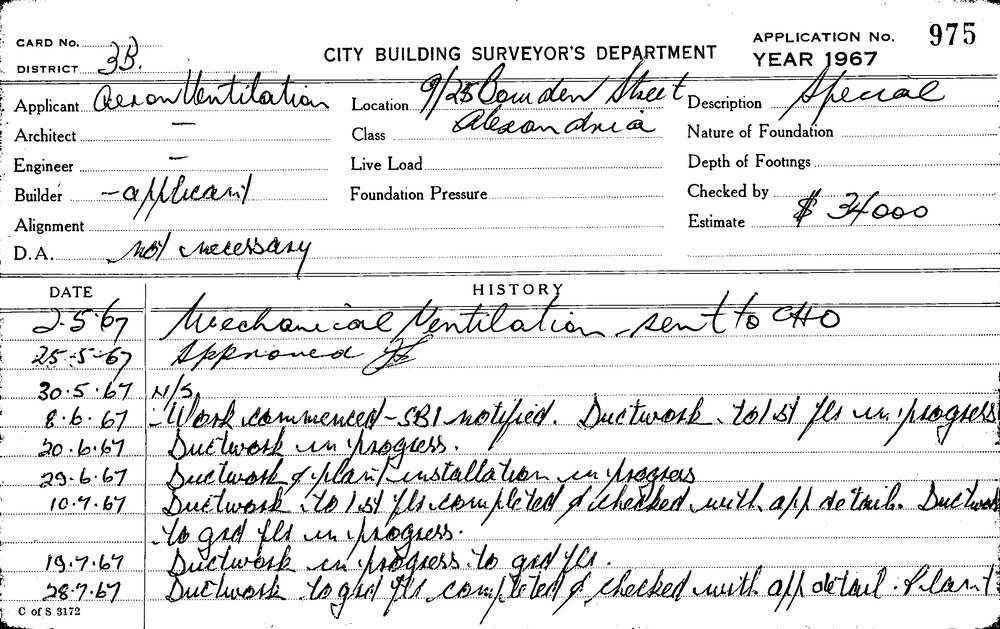 CARD No.
DISTRICT 3B.
CITY BUILDING SURVEYOR'S DEPARTMENT
APPLICATION No. 975
YEAR 1967
Applicant Aeron Ventilation
Location 9/25 Bowden Street
Alexandria
Description Special
Architect —
Class
Nature of Foundation
Engineer —
Live Load
Depth of Footings
Builder - applicant
Foundation Pressure
Checked by
Alignment
Estimate $ 34000
D.A. not necessary
DATE HISTORY
2.5.67 Mechanical Ventilation - sent to CHO
25.5.67 Approved
30.5.67 N/S.
8.6.67 - Work commenced - SBI notified. Ductwork to 1st flr in progress
20.6.67 Ductwork in progress.
29.6.67 Ductwork & plant installation in progress
10.7.67 Ductwork to 1st flr completed & checked with app details. Ductwork
to grd flr in progress.
19.7.67 Ductwork in progress to grd flr.
28.7.67 Ductwork to grd flr completed & checked with app detail. Plant
C of S 3172